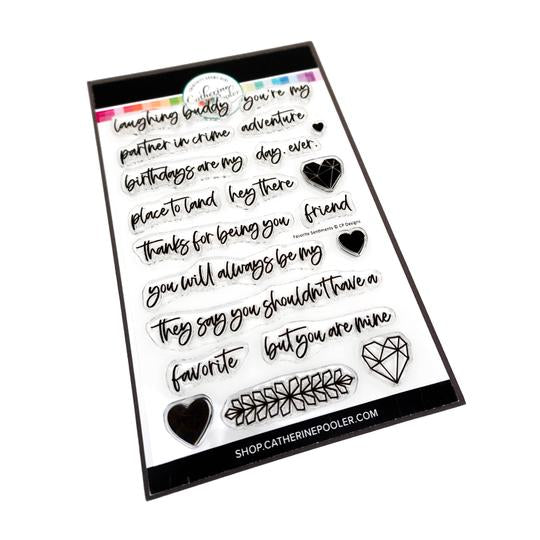 Catherine
Pooler
laughing buddy you're my
partner in crime adventure
birthdays are my day. ever.
place to land hey there
thanks for being you friend
Favorite Sentiments © CP Designs
you will always be my
they say you shouldn't have a
favorite but you are mine
SHOP.CATHERINEPOOLER.COM